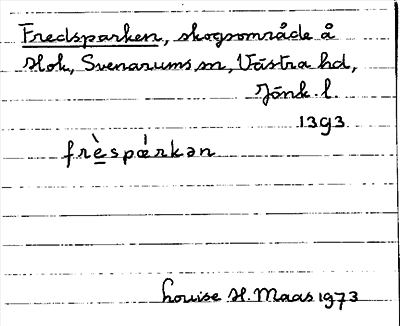 Fredsparken, skogsområde å
Hok, Svenarums sn, Västra hd,
Jönk. l.
1393
frὲspάrkən
Louise H. Maas 1973